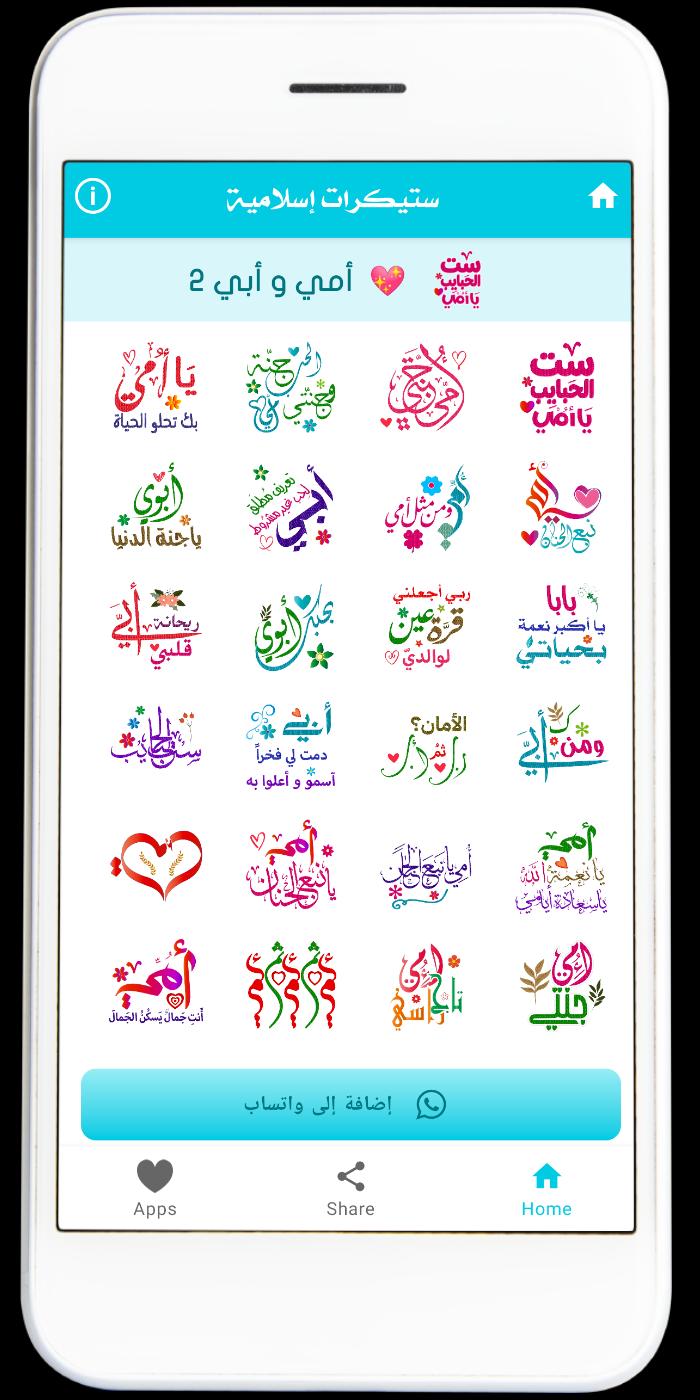 ستيكرات إسلامية
أمي و أبي 2
ست
الحبايب
يا أمي
ست
الحبايب
يا أمي
أمي جنتي
الحب جنة
وجنتي أمي
يا أمي
بك تحلو الحياة
نبع الحنان
أمي
ومن مثل أمي
أبي
تعريف مطلق
لحب غير مشروط
أبوي
ياجنة الدنيا
بابا
يا أكبر نعمة
بحياتي
ربي أجعلني
قرة عين
لوالدي
بحبك أبوي
أبي
ريحانة
قلبي
ومن ك أبي
الأمان؟
ثم
أبي
دمت لي فخراً
آسمو و أعلوا به
ست الحبايب
أمي
يا نعمة الله
ياسعادة أيامي
أمي يا نبع الحنان
أمي
يا نبع الحنان
امي
جنتي
امي
تاج
راسي
أمي ثم أمي ثم أمي
أمي
أنتِ جَمالٌ يَسكُنُ الجَمالَ
إضافة إلى واتساب
Apps
Share
Home